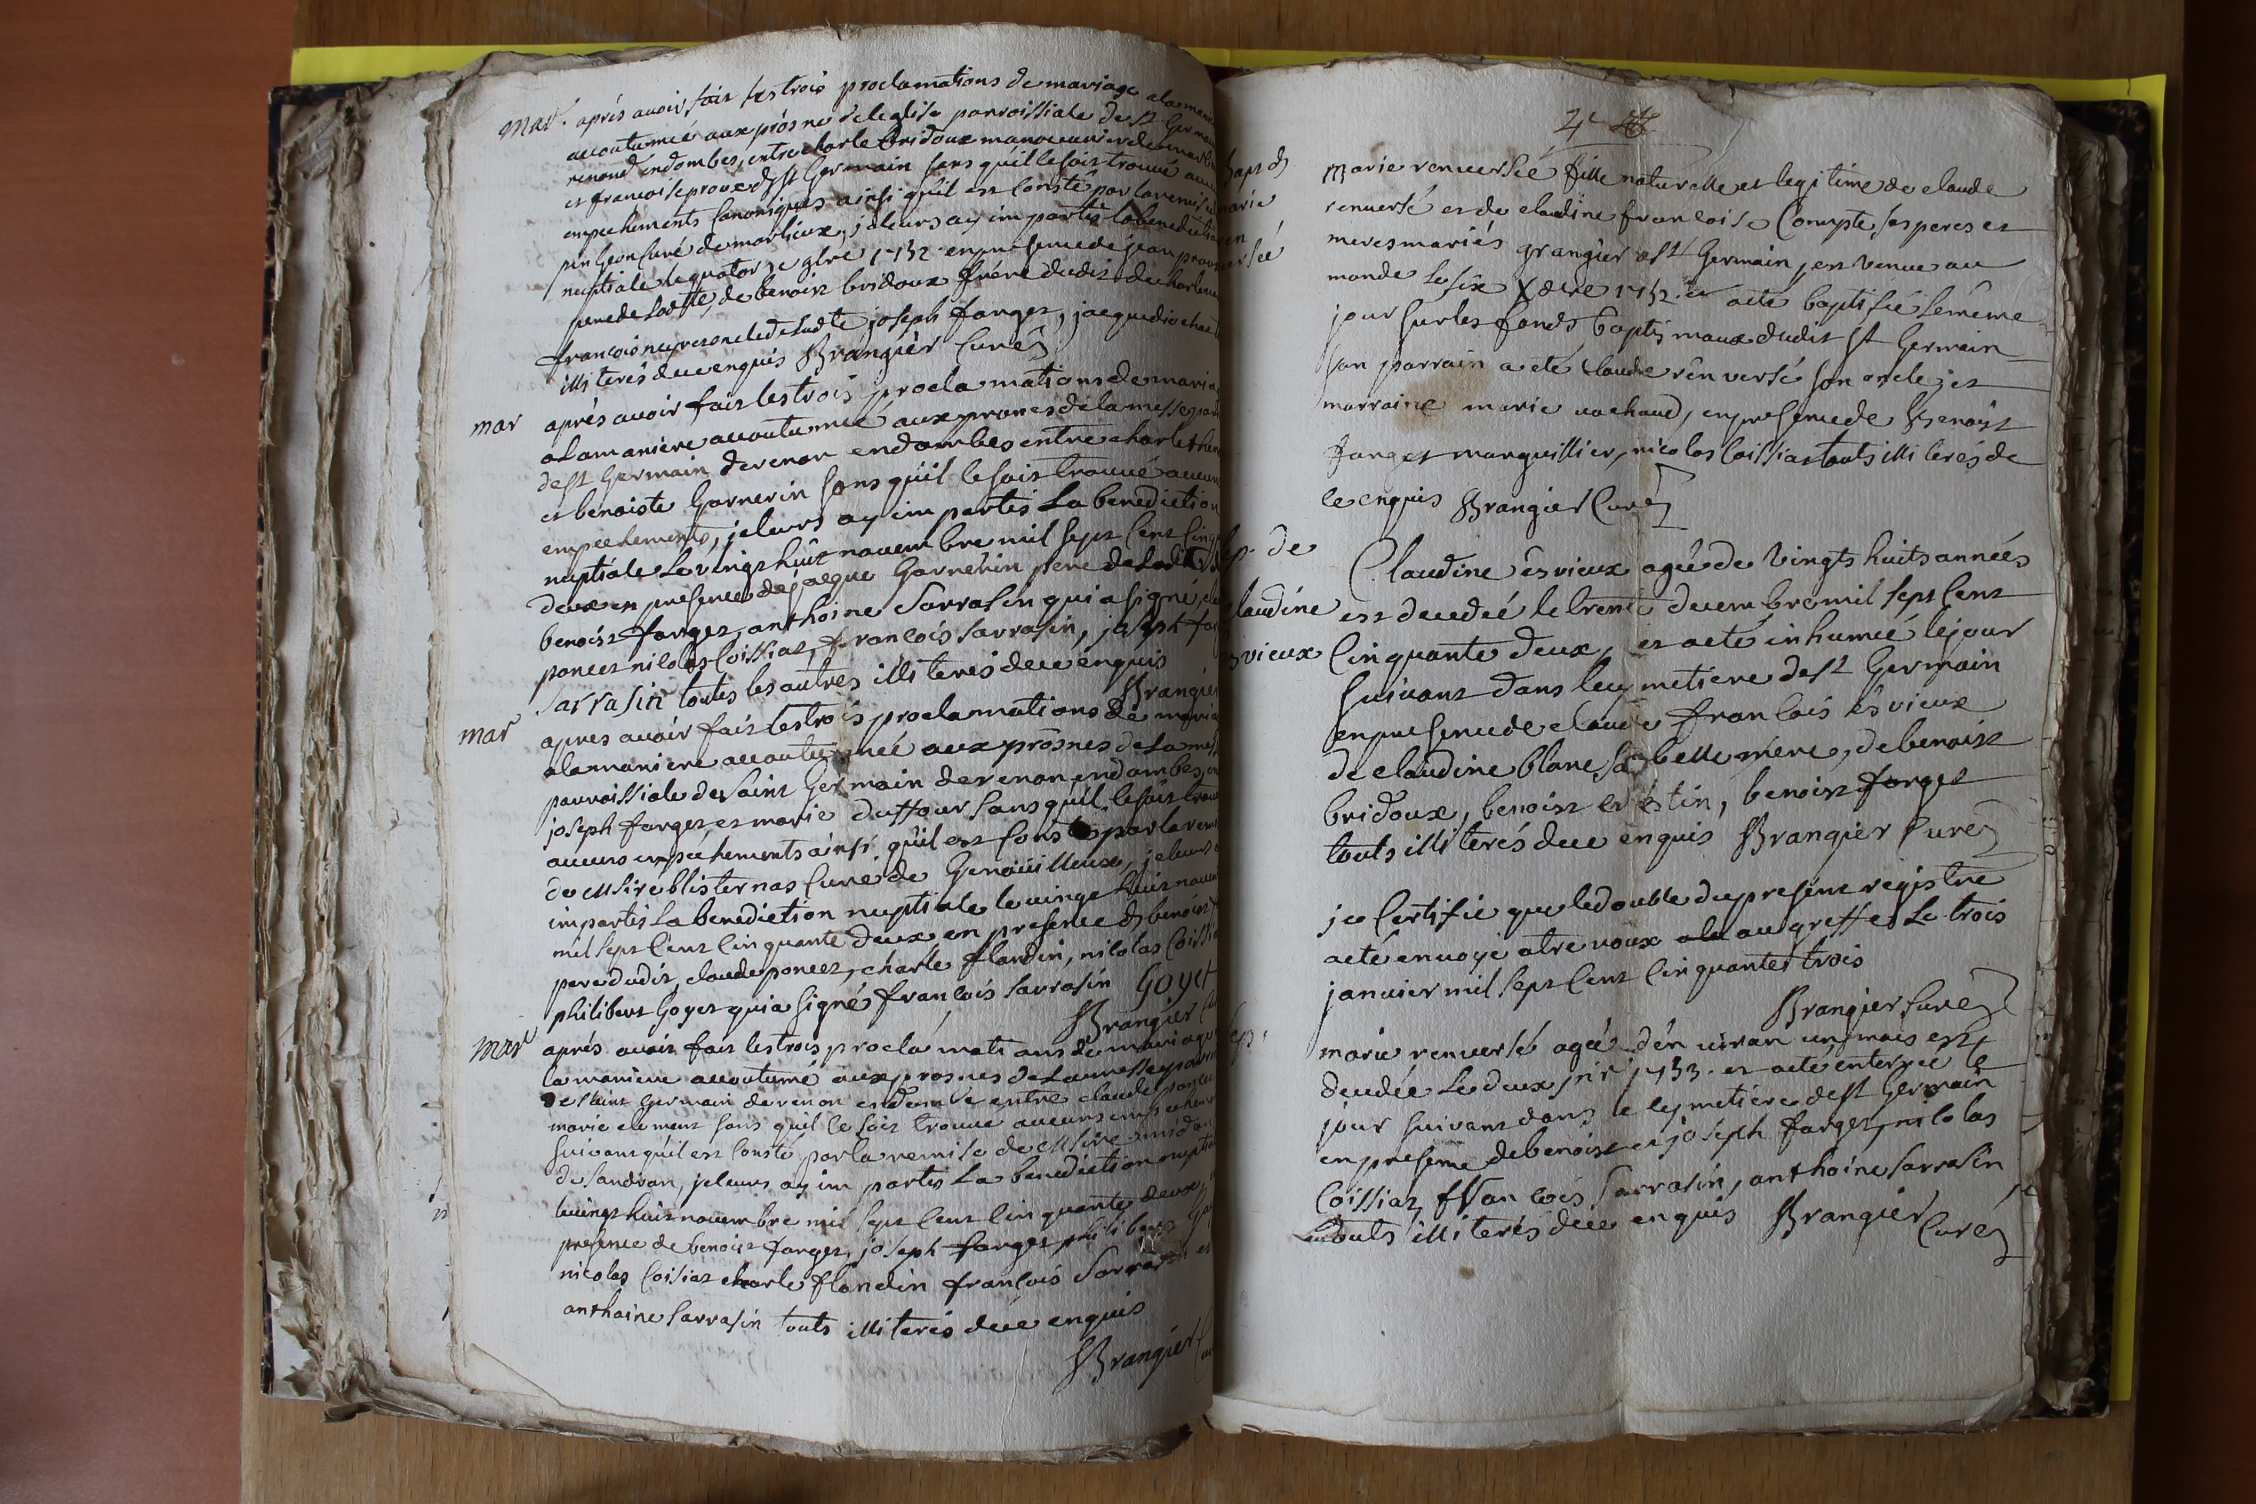 mar. après avoir fait les trois proclamations de mariage a la
accoutumée aux prosnes de leglise parroissiale de st
renond en dombes, entre charle bridoux manoeuvrier de
et francoise proux de st Germain sans quil le soit trouvé
empechements canoniques ainsi quil est Consté par la remise
curé de marlieux, je leurs ay imparti la benediction
nuptiale le quatorze 9bre 1752 en presence de jean proux
pere de Ladtte, de benoist bridoux frère dudit de
francois oncle de Ladte joseph farges, jacque
illiterés de ce enquis Brangier Curé
mar après avoir fait les trois proclamations de
a la maniere accoutumée aux prones de la messe
de st Germain de renon en dombes entre charle
et benoiste Garnerin sans quil le soit trouvé
empechements, je leurs ay imparti La benediction
nuptiale Le vingt huit novembre mil sept Cent
deux en presence de jacque Garnerin pere de Ladite
benoist farges, anthoine Sarrasin qui a signé,
poncet nicolas Coissiat, francois sarrasin, joseph
sarrasin touts les autres illiterés de ce enquis
Brangier
mar apres avoir fait les trois proclamations de
a la maniere accoutumée aux prosnes de La
parroissiale de saint Germain de renon en dombes,
joseph farges et marie duffour sans quil le soit
aucuns empechements ainsi quil est Consté par la
de Msire blisternas Curé de Genouilleux, je leurs
imparti La benediction nuptiale le vingt huit
mil sept Cent Cinquante deux en presence de benoist
pere dudit, claude poncet, charle flandin, nicolas
philibert Goyet qui a signé francois sarrasin Goyet
Brangier
mar après avoir fait les trois proclamations de mariage
la maniere accoutumé aux prosnes de La messe
de saint Germain de renon en dombe entre claude
marie clement sans quil le soit trouvé aucuns
suivant quil est Consté par la remise de Msire
de Sandran, je leurs ay imparti La benediction
le vingt huit novembre mil sept Cent Cinquante deux,
presence de benoist farges, joseph farges philibert
nicolas Coisiat charle flandin francois Sarrasin et
anthoine sarrasin touts illiterés de ce enquis
Brangier
4
bapt de marie renversée
Marie renversée fille naturelle et legitime de claude
renversé et de claudine francoise Compte ses peres et
meres mariés grangier a st Germain, est venue au
monde Le six Xbre 1752. et a eté baptisée le même
jour sur les fonds baptismaux dudit st Germain
son parrain a eté claude renversé son oncle, et
marraine marie vachaud, en presence de Benoist
farges marguillier, nicolas Coissiat touts illiterés de
ce enquis Brangier Curé
sep. de claudine esvieux
Claudine esvieux agée de vingts huits années
est decedée le trente decembre mil sept Cent
Cinquante deux, et a eté inhumée le jour
suivant dans le cymetiere de st Germain
en presence de claude francois esvieux
de claudine blanc sa belle mere, de benoist
bridoux, benoist crestin, benoist farges
touts illiterés de ce enquis Brangier Curé
je Certifie que le double du present registre
a eté envoyé a trevoux au greffe Le trois
janvier mil sept Cent Cinquantes trois
Brangier Curé
sep.
marie renversé agée d'environ un mois est
decedée Le deux jnr 1753. et a eté enterrée le
jour suivant dans le cymetière de st Germain
en presence de benoist et joseph farges, nicolas
Coissiat, francois Sarrasin, anthoine sarrasin
touts illiterés de ce enquis Brangier
Curé